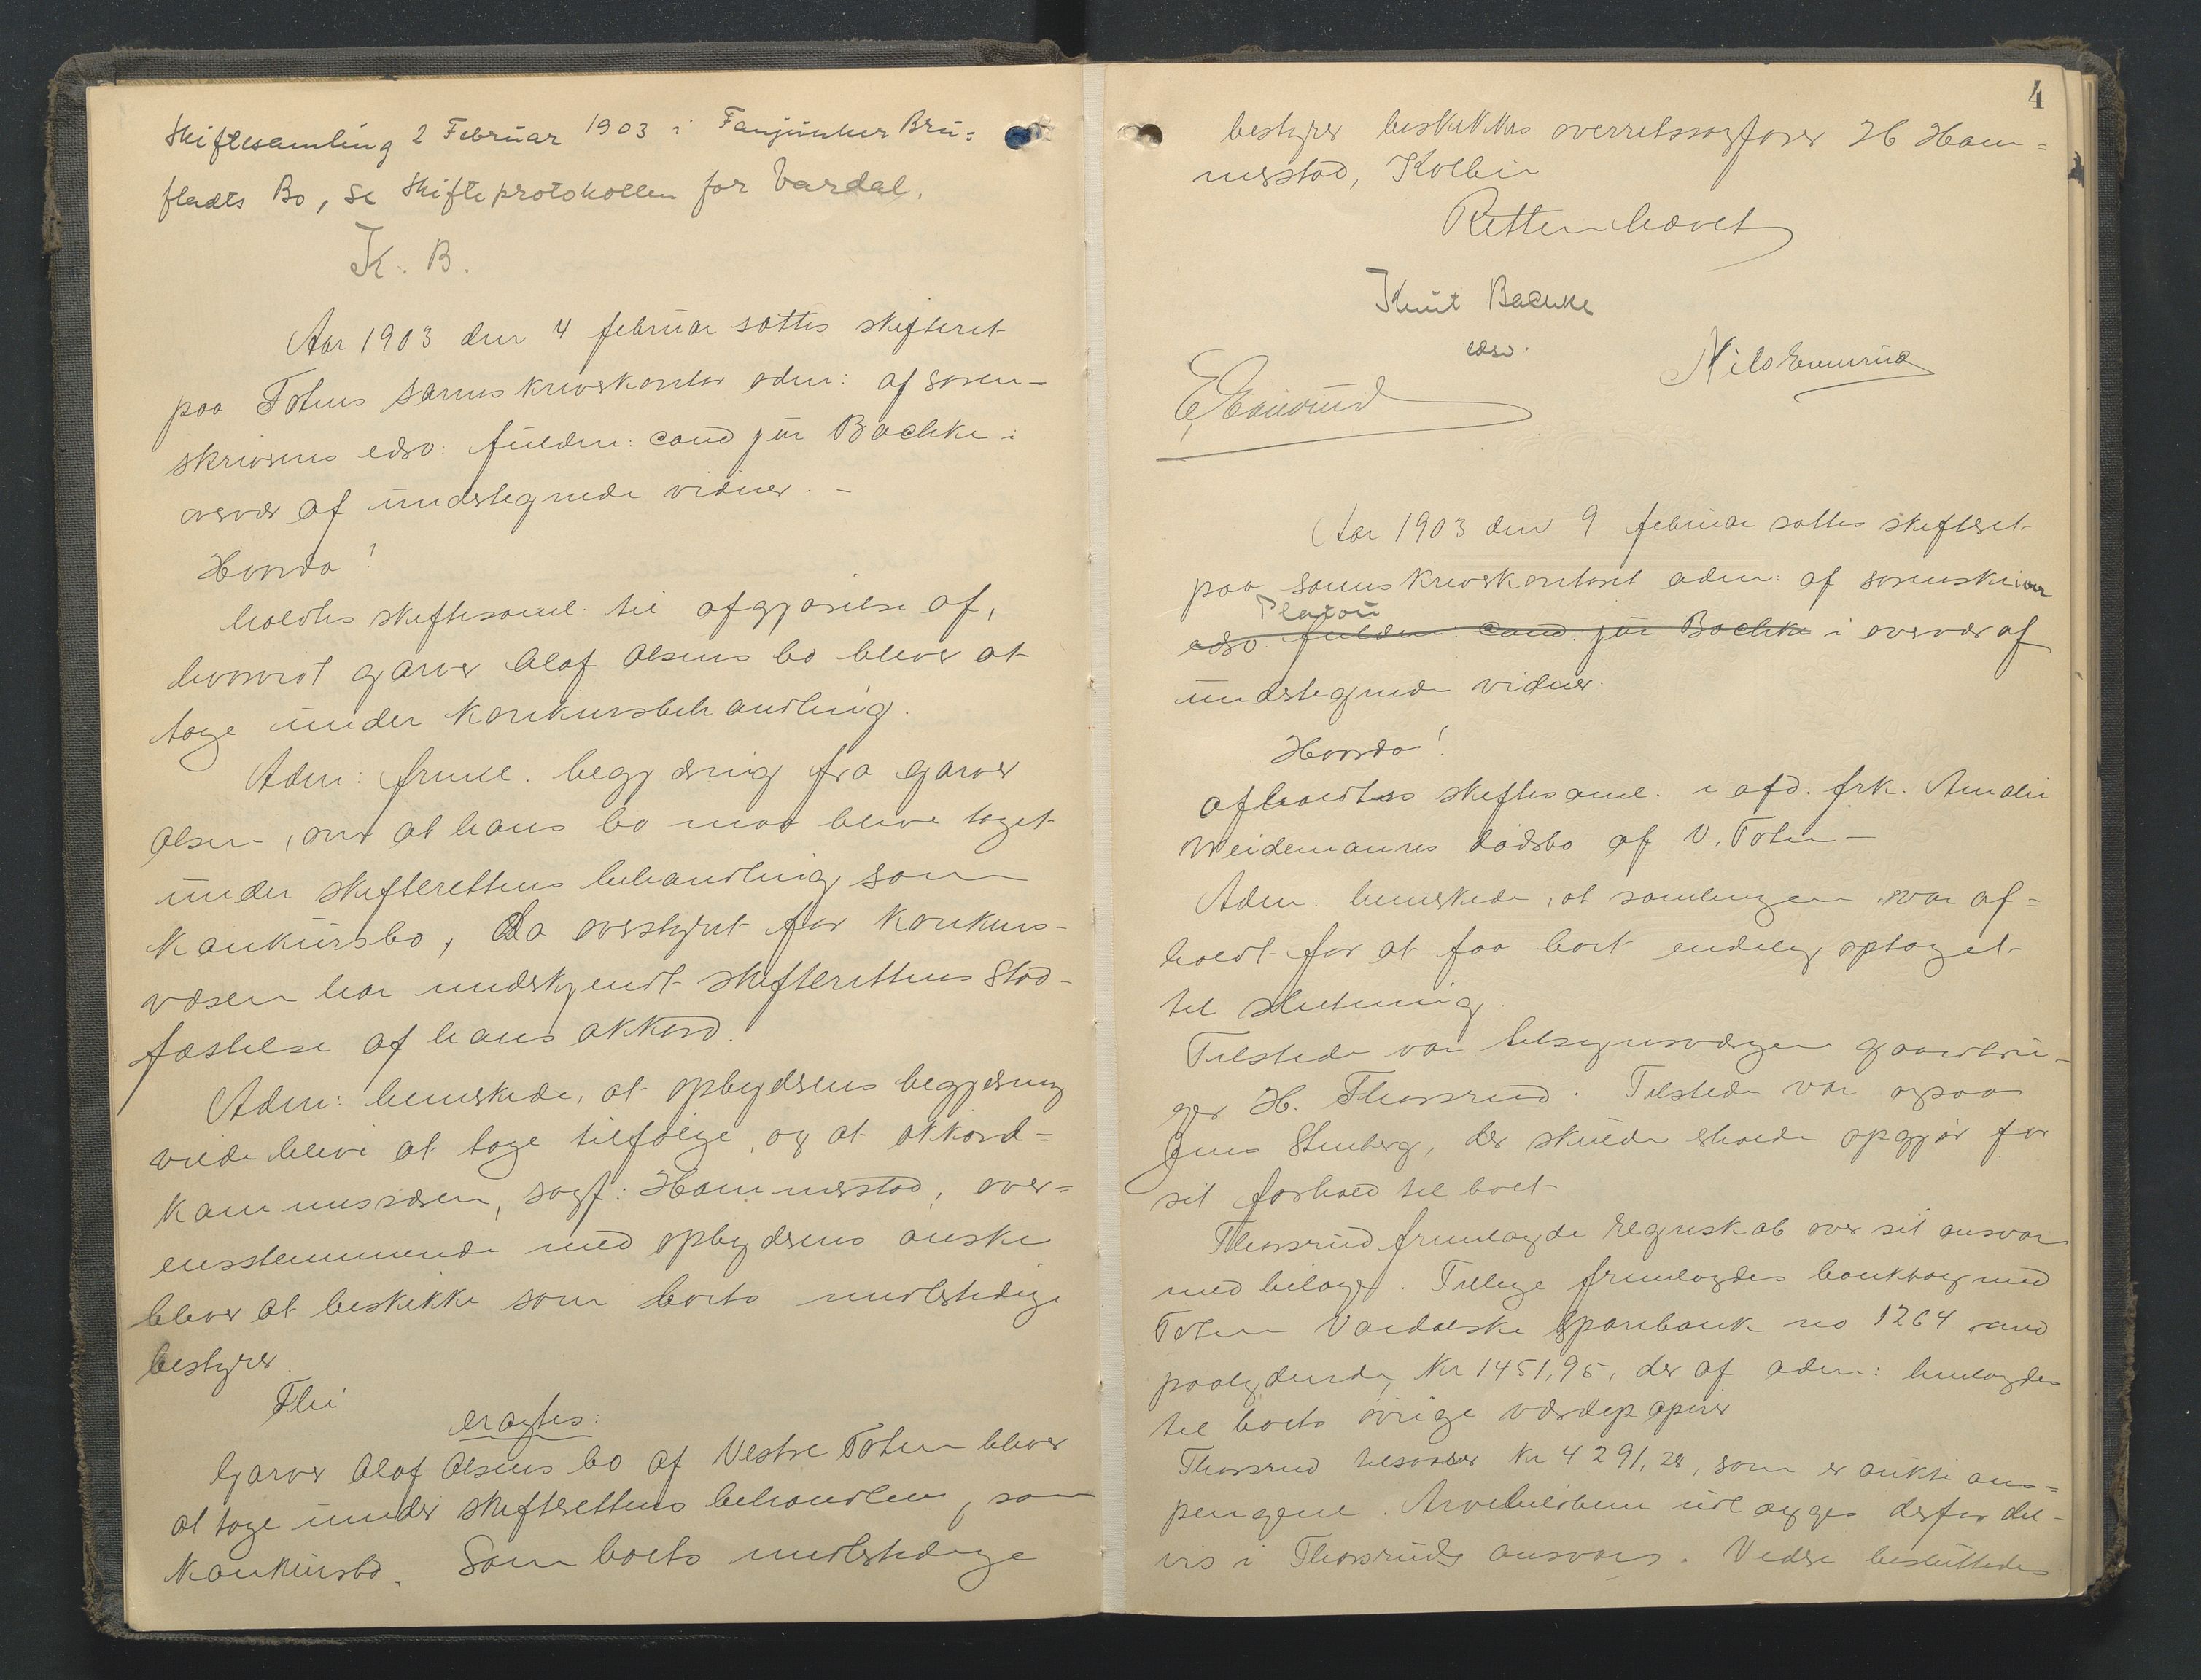 Skiftesamling 2 Februar 1903 i Fanjunker Bru=
fladts Bo, se Skifteprotokollen for Vardal.
K. B.
Aar 1903 den 4 februar sattes skifteret
paa Totens sorenskriverkontor adm: af soren-
skriverens edsv: fuldm: cand jur Bachke i
overvær af undertegnede vidner. -
Hvorda!
holdtes skiftesaml. til afgjørelse af,
hvorvidt garver Olaf Olsens bo bliver at
tage under konkursbehandling.
Adm: freml. begjæring fra garver
Olsen, om at hans bo maa blive taget
under skifterettens behandling som
konkursbo, da overstyret for konkurs-
væsen har underkjendt skifterettens stad-
fæstelse af hans akkord.
Adm: bemerkede, at opbyderens begjæring
vilde blive at tage tilfølge, og at akkord=
kommissæren, sagf: Hammerstad, over=
ensstemmende med opbyderens ønske
bliver at beskikke som boets midlertidige
bestyrer.
Thi
eragtes:
Garver Olaf Olsens bo af Vestre Toten bliver
at tage under skifterettens behandling, som
konkursbo. Som boets midlertidige
4
bestyrer beskikkes overretssagfører H Ham=
merstad, Kolbu
Retten hævet
Knut Bachke
edsv.
Nils Evenrud
E. Evenrud
Aar 1903 den 9 februar sattes skifteret
paa sorenskriverkontoret adm: af sorenskriver
Platou
edsv. fuldm. cand. jur Bachke i overvær af
undertegnede vidner.
Hvorda!
afholdtes skiftesaml. i afd. frk. Amalie
Weidemanns dødsbo af V. Toten -
Adm: bemerkede, at samlingen var af=
holdt for at faa boet endelig optaget
til slutning.
Tilstede var tilsynsværgen gaardbru-
ger H. Thorsrud. Tilstede var ogsaa
Jens Stenberg, der skulde erholde opgjør for
sit forhold til boet
Thorsrud fremlagde regnskab over sit ansvar
med bilager. Tillige fremlagdes bankbog med
Toten Vardalske Sparebank no 1264
paalydende Kr 1451,95, der af adm: henlagdes
til boets øvrige værdepapirer
Thorsrud tilsvarer Kr 4291,28, som er auktions=
pengene. Arvebeløbene udlægges derfor del-
vis i Thorsruds ansvar. Videre besluttedes